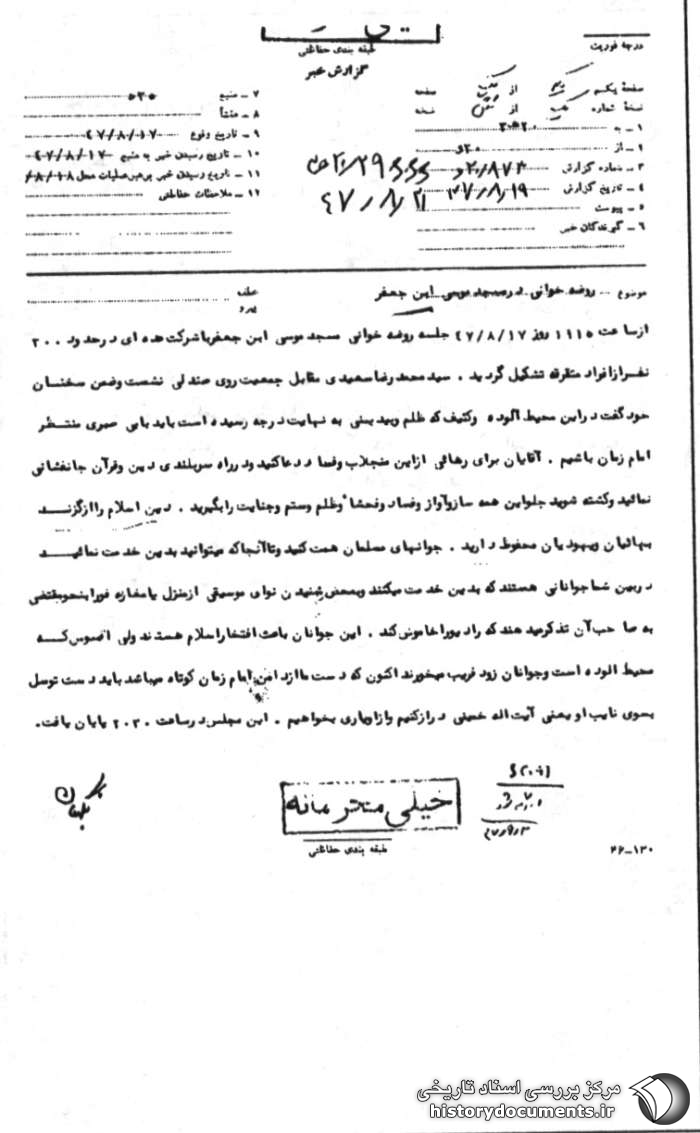 درجه فوریت
طبقه بندی حفاظتی
گزارش خبر
صفحهٔ یکم از صفحه
نسخهٔ شماره از نسخه
۱ ـ به ۳۰۵۲۰
۲ ـ از
۳ ـ شماره گزارش ۲۰/۸۷۳
۴ ـ تاریخ گزارش ۴۷/۸/۱۹
۵ ـ پیوست
۶ ـ گیرندگان خبر
۷ ـ منبع ۵۳۵
۸ ـ منشأ
۹ ـ تاریخ وقوع ۴۷/۸/۱۷
۱۰ ـ تاریخ رسیدن خبر به منبع ۴۷/۸/۱۷
۱۱ ـ تاریخ رسیدن خبر بر هبر عملیات محل ۸/۱۸
۱۲ ـ ملاحظات حفاظتی
۴۷/۸/۲۱
موضوع ـ روضه خوانی در مسجد موسی ابن جعفر
عطف
پیرو
از ساعت ۱۹۱۵ روز ۴۷/۸/۱۷ جلسه روضه خوانی مسجد موسی ابن جعفر با شرکت عده ای در حدود ۲۰۰
نفر از افراد متفرقه تشکیل گردید . سید محمد رضا سعیدی مقابل جمعیت روی صندلی نشست و ضمن سخنان
خود گفت در این محیط آلوده وکثیف که ظلم و بیدینی به نهایت درجه رسیده است باید با بی صبری منتظر
امام زمان باشیم . آقایان برای رهائی از این منجلاب و فساد دعا کنید و در راه سربلندی دین و قرآن جانفشانی
نمائید وکشته شوید جلو این همه ساز و آواز و فساد و فحشاء و ظلم و ستم و جنایت را بگیرید . دین اسلام را از گزند
بهائیان و یهودیان محفوظ دارید . جوانهای مسلمان همت کنید و تا آنجا که میتوانید بدین خدمت نمائید
در بین شما جوانانی هستند که بدین خدمت میکنند و بمحض شنیدن نوای موسیقی از منزل یا مغازه فورا بنحو مقتضی
به صاحب آن تذکر میدهند که رادیو را خاموش کند . این جوانان باعث افتخار اسلام هستند ولی افسوس که
محیط آلوده است و جوانان زود فریب میخورند اکنون که دست ما از دامن امام زمان کوتاه میباشد باید دست توسل
بسوی نایب او یعنی آیت اله خمینی دراز کنیم و از او یاری بخواهیم . این مجلس در ساعت ۲۰۳۰ پایان یافت.
خیلی محرمانه
طبقه بندی حفاظتی
۴۶-۱۳۰
مرکز بررسی اسناد تاریخی
historydocuments.ir